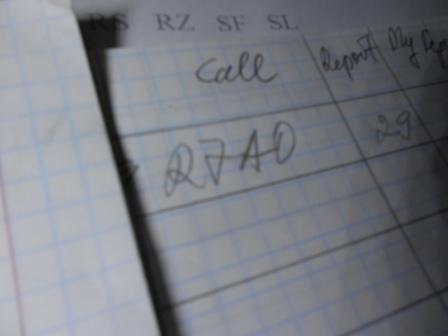 RS RZ SF SL
Call Report My
R7AO 29